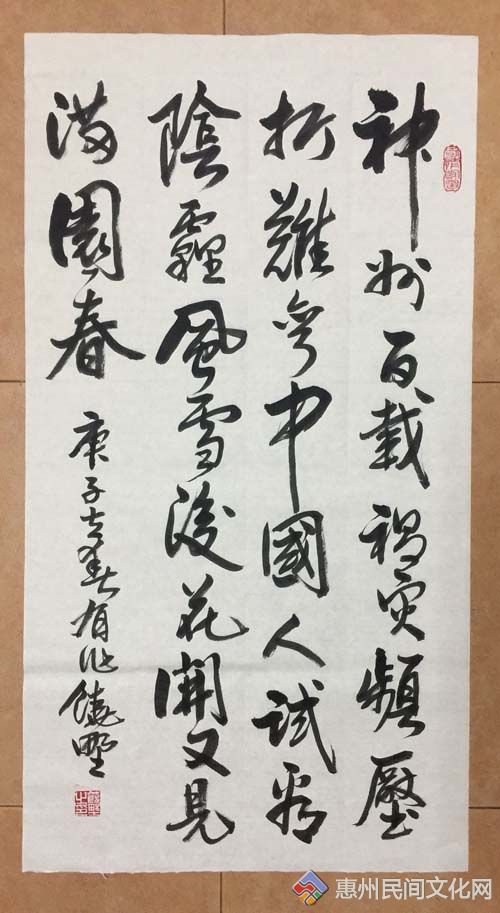 神州百載禍灾頻壓
折難中國人試看
陰霾風雪後花開又見
滿園春
庚子立春有作
惠州民间文化网